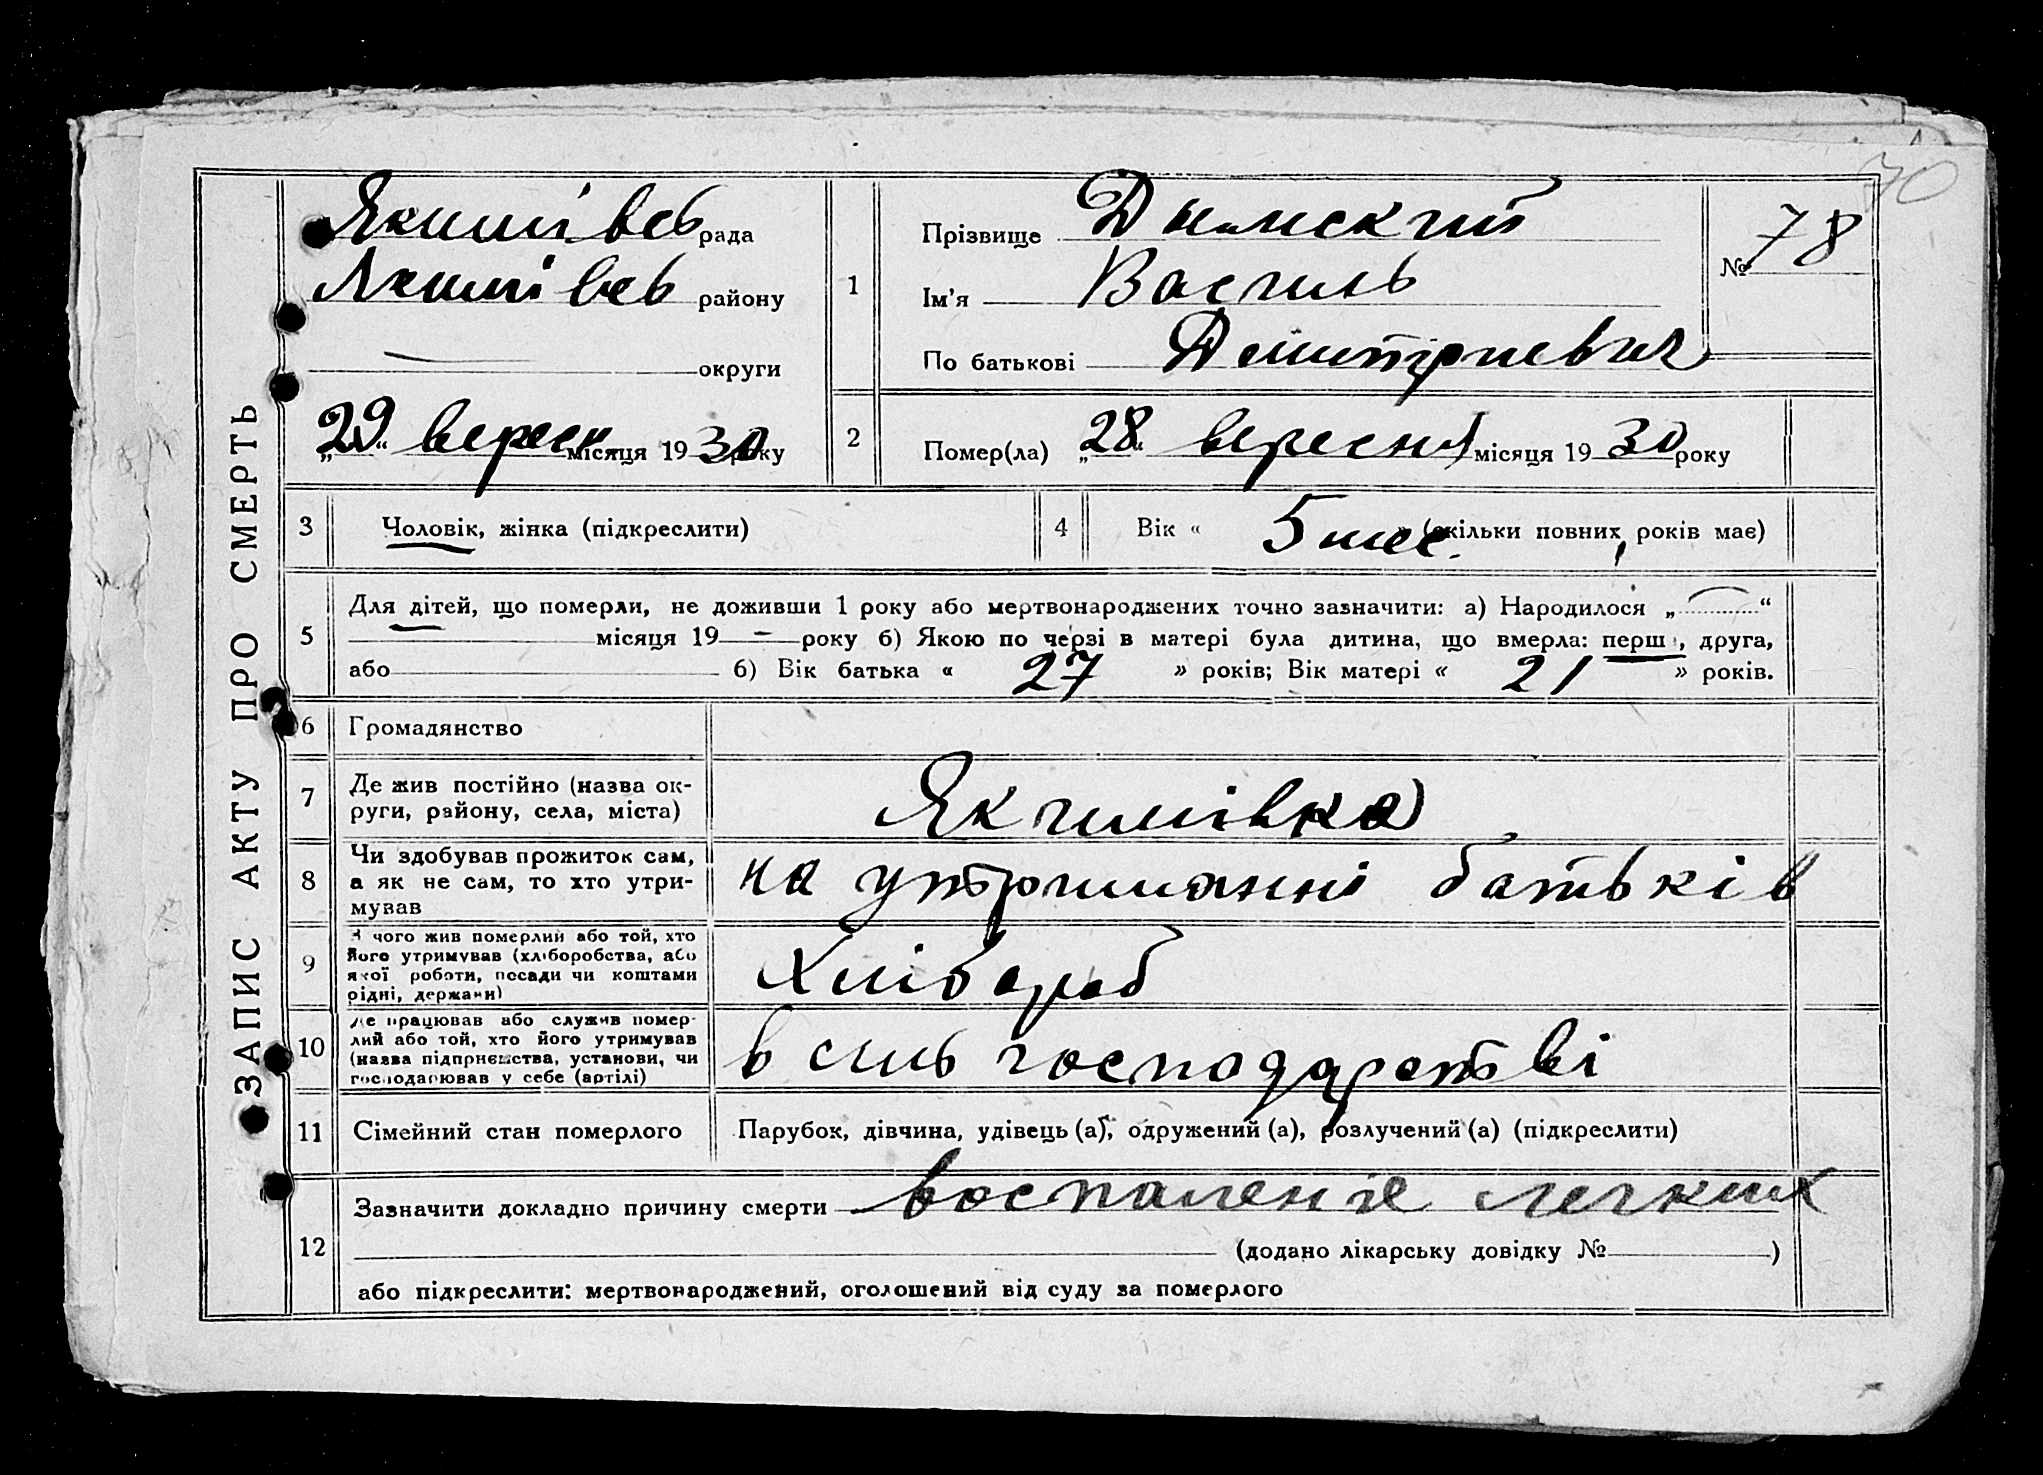 70
ЗАПИС АКТУ ПРО СМЕРТЬ
Якимівсь рада
Якимівсь району
округи
„29“ вересн місяця 1930 року
1
Прізвище Дымский
Ім'я Василь
По батькові Дмитріевич
№ 78
2
Помер(ла) „28“ вересня місяця 1930 року
3 Чоловік, жінка (підкреслити)
4 Вік « 5 мес. » (скільки повних років має)
5
Для дітей, що померли, не доживши 1 року або мертвонароджених точно зазначити: а) Народилося „ “
місяця 19 — року б) Якою по черзі в матері була дитина, що вмерла: перш , друга,
або б) Вік батька « 27 » років; Вік матері « 21 » років.
6 Громадянство
7
Де жив постійно (назва ок-
руги, району, села, міста)
Якимівка
8
Чи здобував прожиток сам,
а як не сам, то хто утри-
мував
на утриманні батьків
9
З чого жив померлий або той, хто
його утримував (хліборобства, або
якої роботи, посади чи коштами
рідні, держави)
Хлібороб
10
Де працював або служив помер-
лий або той, хто його утримував
(назва підприємства, установи, чи
господарював у себе (артілі)
в сель господарстві
11 Сімейний стан померлого
Парубок, дівчина, удівець (а), одружений (а), розлучений (а) (підкреслити)
12
Зазначити докладно причину смерти воспаленіе легких
(додано лікарську довідку № )
або підкреслити: мертвонароджений, оголошений від суду за померлого